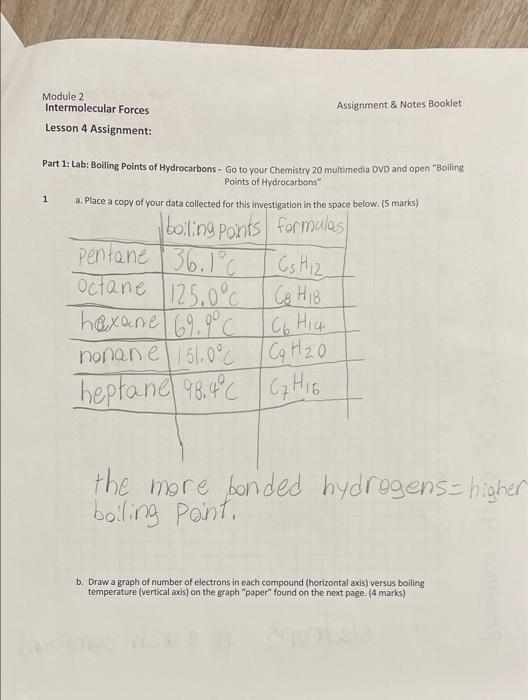 Module 2
Intermolecular Forces
Assignment & Notes Booklet
Lesson 4 Assignment:
Part 1: Lab: Boiling Points of Hydrocarbons - Go to your Chemistry 20 multimedia DVD and open "Boiling
Points of Hydrocarbons"
1 a. Place a copy of your data collected for this investigation in the space below. (5 marks)
boiling points formulas
pentane 36.1°C C5H12
octane 125.0°C C8H18
hexane 69.9°C C6H14
nonane 151.0°C C9H20
heptane 98.4°C C7H16
the more bonded hydrogens = higher
boiling point.
b. Draw a graph of number of electrons in each compound (horizontal axis) versus boiling
temperature (vertical axis) on the graph "paper" found on the next page. (4 marks)